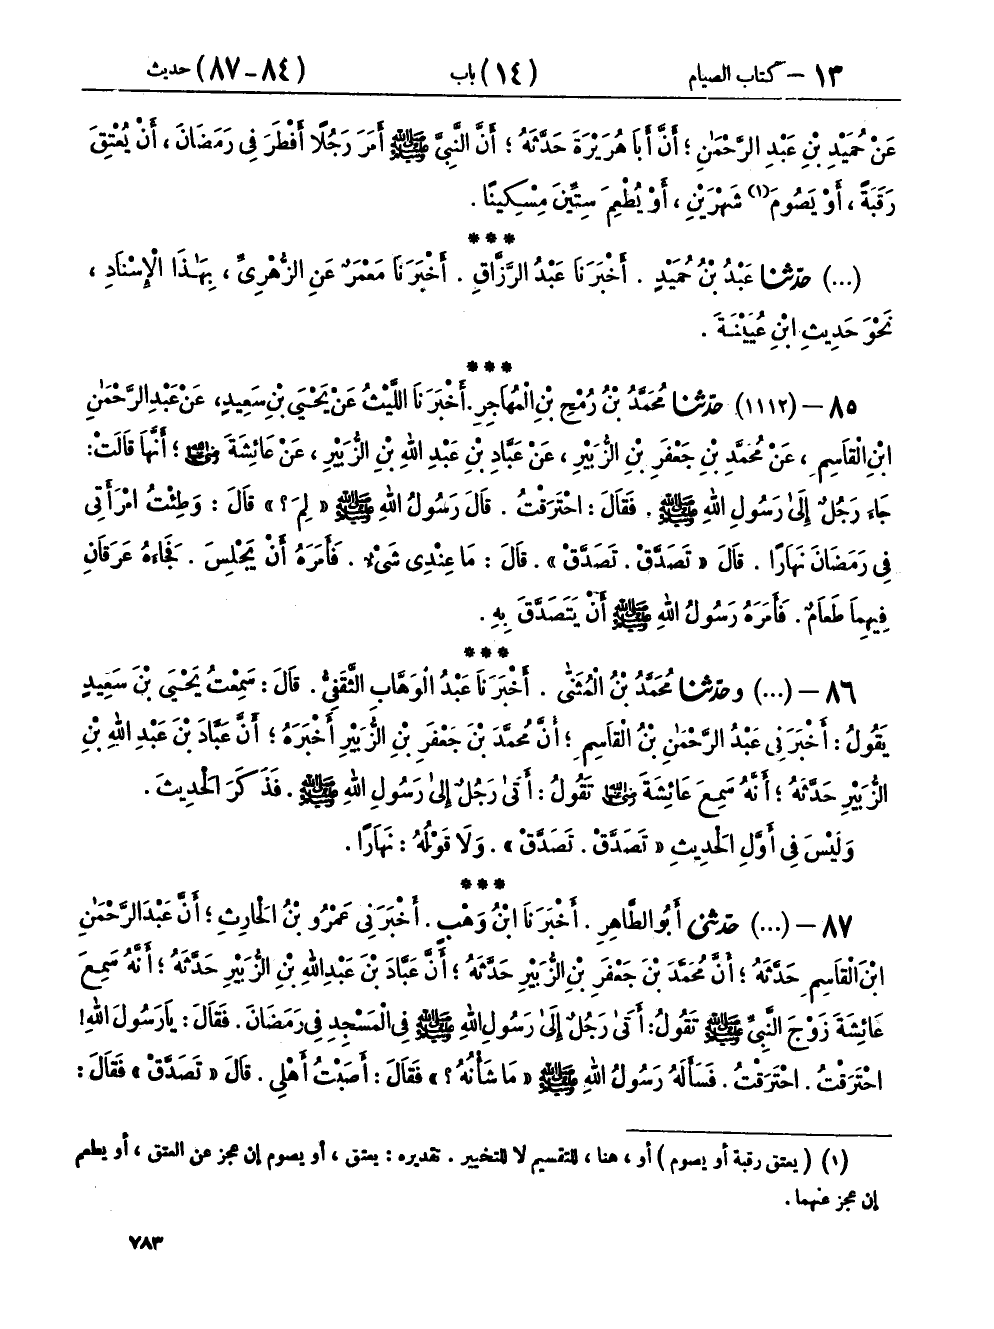 ١٣ – كتاب الصيام (١٤) باب (٨٤-٨٧) حديث
عَنْ حُمَيْدِ بْنِ عَبْدِ الرَّحْمَٰنِ ؛ أَنَّ أَبَا هُرَيْرَةَ حَدَّثَهُ ؛ أَنَّ النَّبِيَّ ﷺ أَمَرَ رَجُلًا أَفْطَرَ فِى رَمَضَانَ ، أَنْ يُعْتِقَ
رَقَبَةً ، أَوْ يَصُومَ (١) شَهْرَيْنِ ، أَوْ يُطْعِمَ سِتِّينَ مِسْكِينًا .
***
(...) حَدَّثَنَا عَبْدُ بْنُ حُمَيْدٍ . أَخْبَرَنَا عَبْدُ الرَّزَّاقِ . أَخْبَرَنَا مَعْمَرٌ عَنِ الزُّهْرِىِّ ، بِهَٰذَا الْإِسْنَادِ ،
نَحْوَ حَدِيثِ ابْنِ عُيَيْنَةَ .
***
٨٥ – (١١١٢) حَدَّثَنَا مُحَمَّدُ بْنُ رُمْحِ بْنِ الْمُهَاجِرِ . أَخْبَرَنَا اللَّيْثُ عَنْ يَحْيَى بْنِ سَعِيدٍ ، عَنْ عَبْدِ الرَّحْمَٰنِ
ابْنِ الْقَاسِمِ ، عَنْ مُحَمَّدِ بْنِ جَعْفَرِ بْنِ الزُّبَيْرِ ، عَنْ عَبَّادِ بْنِ عَبْدِ اللهِ بْنِ الزُّبَيْرِ ، عَنْ عَائِشَةَ رضي الله عنها ؛ أَنَّهَا قَالَتْ :
جَاءَ رَجُلٌ إِلَىٰ رَسُولِ اللهِ ﷺ . فَقَالَ : احْتَرَقْتُ . قَالَ رَسُولُ اللهِ ﷺ « لِمَ ؟ » قَالَ : وَطِئْتُ امْرَأَتِى
فِى رَمَضَانَ نَهَارًا . قَالَ « تَصَدَّقْ . تَصَدَّقْ » . قَالَ : مَا عِنْدِى شَىْءٌ . فَأَمَرَهُ أَنْ يَجْلِسَ . فَجَاءَهُ عَرَقَانِ
فِيهِمَا طَعَامٌ . فَأَمَرَهُ رَسُولُ اللهِ ﷺ أَنْ يَتَصَدَّقَ بِهِ .
***
٨٦ – (...) وَحَدَّثَنَا مُحَمَّدُ بْنُ الْمُثَنَّىٰ . أَخْبَرَنَا عَبْدُ الْوَهَّابِ الثَّقَفِىُّ . قَالَ : سَمِعْتُ يَحْيَى بْنَ سَعِيدٍ
يَقُولُ : أَخْبَرَنِى عَبْدُ الرَّحْمَٰنِ بْنُ الْقَاسِمِ ؛ أَنَّ مُحَمَّدَ بْنَ جَعْفَرِ بْنِ الزُّبَيْرِ أَخْبَرَهُ ؛ أَنَّ عَبَّادَ بْنَ عَبْدِ اللهِ بْنِ
الزُّبَيْرِ حَدَّثَهُ ؛ أَنَّهُ سَمِعَ عَائِشَةَ رضي الله عنها تَقُولُ : أَتَىٰ رَجُلٌ إِلَىٰ رَسُولِ اللهِ ﷺ . فَذَكَرَ الْحَدِيثَ .
وَلَيْسَ فِى أَوَّلِ الْحَدِيثِ « تَصَدَّقْ . تَصَدَّقْ » . وَلَا قَوْلُهُ : نَهَارًا .
***
٨٧ – (...) حَدَّثَنِى أَبُو الطَّاهِرِ . أَخْبَرَنَا ابْنُ وَهْبٍ . أَخْبَرَنِى عَمْرُو بْنُ الْحَارِثِ ؛ أَنَّ عَبْدَ الرَّحْمَٰنِ
ابْنَ الْقَاسِمِ حَدَّثَهُ ؛ أَنَّ مُحَمَّدَ بْنَ جَعْفَرِ بْنِ الزُّبَيْرِ حَدَّثَهُ ؛ أَنَّ عَبَّادَ بْنَ عَبْدِ اللهِ بْنِ الزُّبَيْرِ حَدَّثَهُ ؛ أَنَّهُ سَمِعَ
عَائِشَةَ زَوْجَ النَّبِىِّ ﷺ تَقُولُ : أَتَىٰ رَجُلٌ إِلَىٰ رَسُولِ اللهِ ﷺ فِى الْمَسْجِدِ فِى رَمَضَانَ . فَقَالَ : يَا رَسُولَ اللهِ !
احْتَرَقْتُ . احْتَرَقْتُ . فَسَأَلَهُ رَسُولُ اللهِ ﷺ « مَا شَأْنُهُ ؟ » فَقَالَ : أَصَبْتُ أَهْلِى . قَالَ « تَصَدَّقْ » فَقَالَ :
(١) ( يعتق رقبة أو يصوم ) أو ، هنا ، للتقسيم لا للتخيير . تقديره : يعتق ، أو يصوم إن عجز عن العتق ، أو يطعم
إن عجز عنهما .
٧٨٣